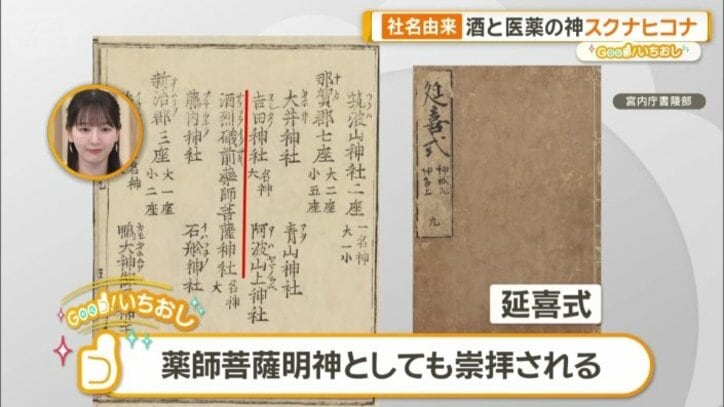 社名由来
酒と医薬の神スクナヒコナ
Good!いちおし
宮内庁書陵部
筑波山神社二座
一名神
大一小
那賀郡七座
大二座
小五座
大井神社
青山神社
吉田神社
名神
大
阿波山上神社
酒烈礒前薬師菩薩神社
名神
大
藤内神社
石船神社
新治郡三座
大一座
小二座
名神
鴨大神
延喜式
神祇九
神名上
九
延喜式
Good!いちおし
薬師菩薩明神としても崇拝される